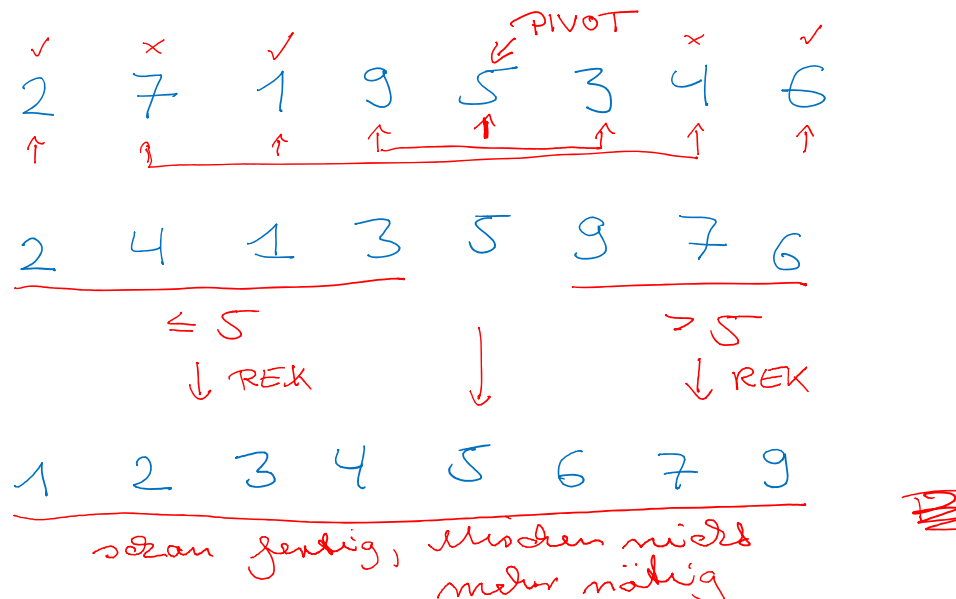 PIVOT
✓ × ✓ × ✓
2 7 1 9 5 3 4 6
2 4 1 3 5 9 7 6
≤ 5 > 5
↓ REK ↓ ↓ REK
1 2 3 4 5 6 7 9
schon fertig, Mischen nicht
mehr nötig